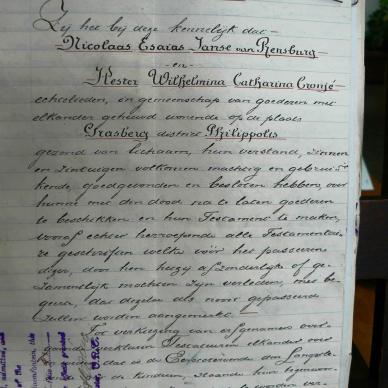 Zij het bij deze kennelijk dat
Nicolaas Esaias Janse van Rensburg
en
Hester Wilhelmina Catharina Cronjé
echtelieden, in gemeenschap van goederen met
elkander gehuwd wonende op de plaats
Grasberg district Philippolis
gezond van lichaam, hun verstand, zinnen
en zintuigen volkomen machtig en gebruik
kende, goedgevonden en besloten hebben, over
hunne met den dood na te laten goederen
te beschikken en hun Testament te maken,
vooraf echter herroepende alle Testamentai
re geschriften welke vóór het passeeren
dezer, door hen hetzij afzonderlijk of ge
zamenlijk mochten zijn verleden, met be
geven, dat dezelve als nooit gepasseerd
zullen worden aangemerkt.
Tot verkiezing van erfgenamen over
Testateuren elkander over
dat is de Eerststervende den Langstle
de Kinderen, staande hun
te worden ver